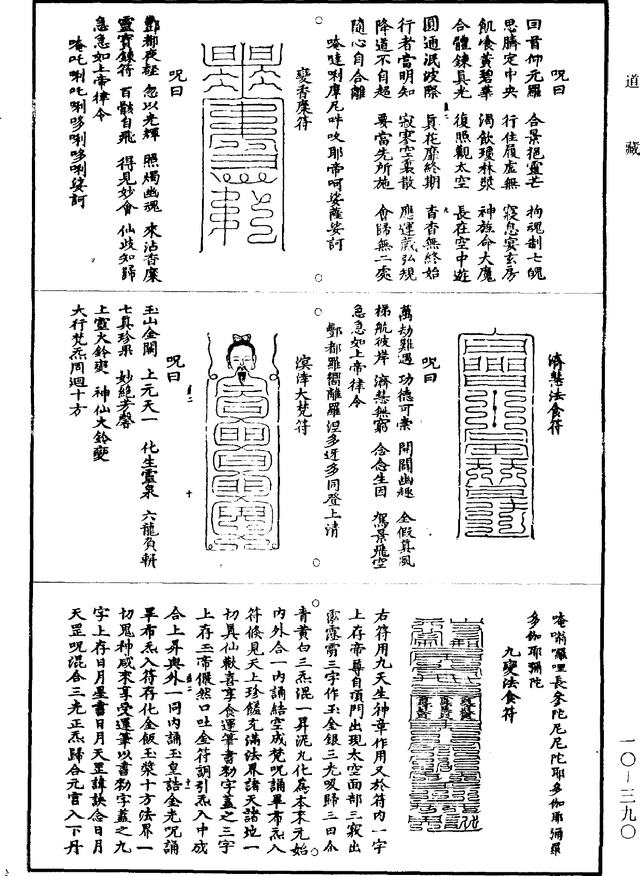 道藏
咒曰
回首仰元羅　合景挹靈芒　拘魂制七魄
思臍定中央　行住履虛無　寢息宴玄房
飢飡黃碧華　渴飲瓊林漿　神旌命大魔
合體鍊真光　復照觀太空　長在空中遊
圓通泯波際　真花靡終期　杳杳無終始
行者當明知　寂寥空裏散　應運義弘規
降道不自超　要當先所施　會歸無二處
隨心自合離
唵噠唎摩尼吽㕭耶帝呵娑薩娑訶
變香糜符
咒曰
酆都夜壑　忽以光輝　照燭幽魂　來沾香糜
靈寶鍊符　百骸自飛　得見妙會　仙歧知歸
急急如上帝律令
唵吒唎吒唎哆唎哆唎娑訶
濟慧法食符
咒曰
萬劫難遇　功德可崇　開闢幽趣　全假真風
梯航彼岸　濟慧無窮　念念生因　駕景飛空
急急如上帝律令
酆都羅嚮離羅涅多迓多同登上清
溟涬大梵符
咒曰
玉山金闕　上元天一　化生靈泉　六龍負輧
七真珍果　妙絕芳馨
上靈大鈴變　神仙大鈴變
大行梵炁周迴十方
多伽耶彌陀
九變法食符
右符用九天生神章作用又於符內一字
上存帝尊自頂門出現太空面部三竅出
霐霐霐三字作玉金銀三光吸歸三田合
青黃白三炁混一昇泥丸化爲本來元始
內外合一內誦結空成梵咒誦畢布炁入
符倏見天上珍饈充滿法界諸天諸地一
切眞仙歡喜享食運筆書勑字蓋之三字
上存玉帝儼然口吐金符詞引炁入中成
合上昇與外一同內誦玉皇誥金光咒誦
畢布炁入符存化金飯玉漿十方法界一
切鬼神咸來享受運筆以書勑字蓋之九
字上存日月星書日月天罡諱訣念日月
天罡咒混合三光正炁歸合元宮入下丹
一〇—三九〇